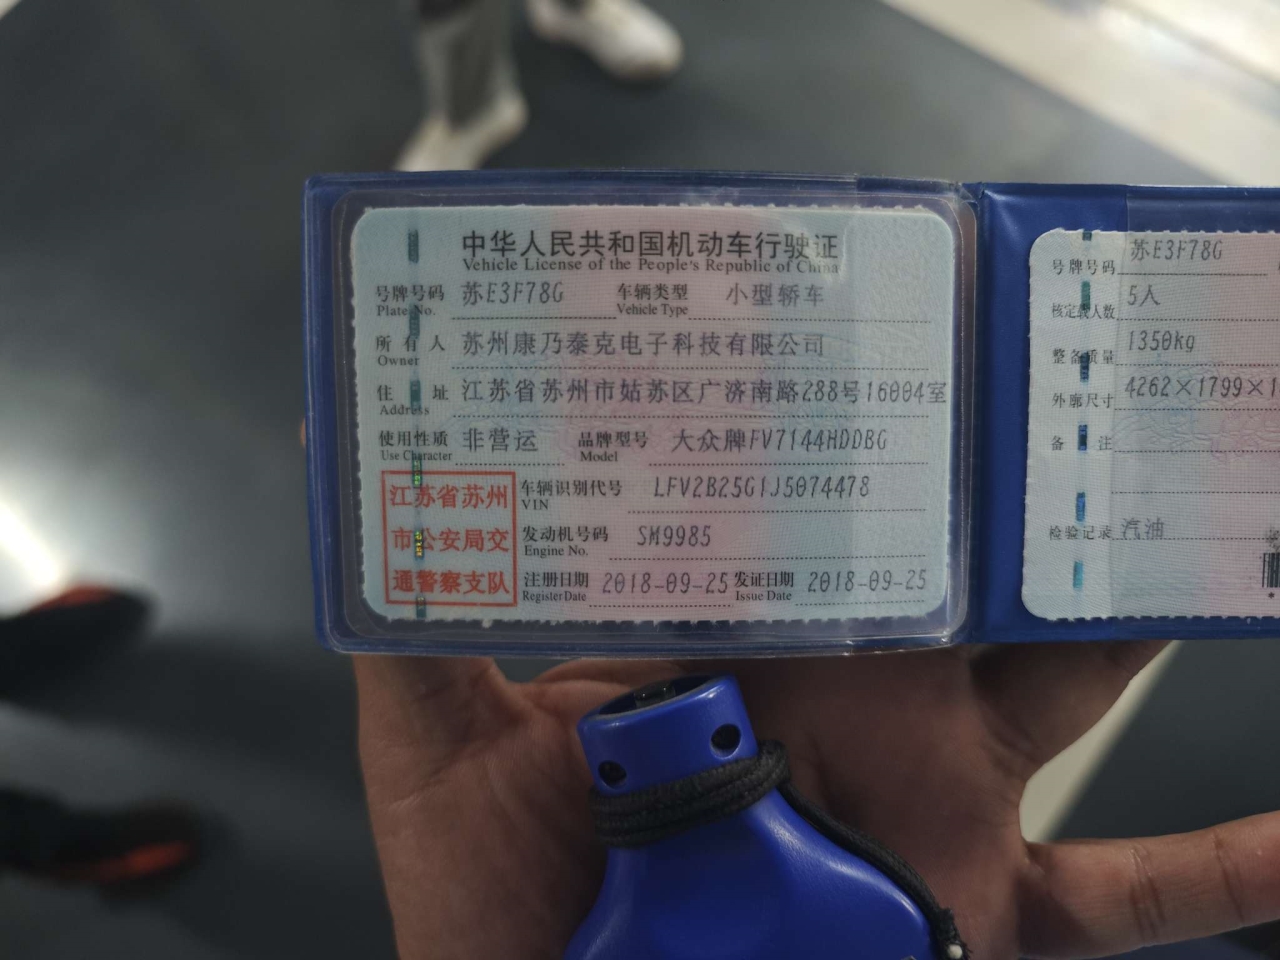 中华人民共和国机动车行驶证
Vehicle License of the People's Republic of China
号牌号码 苏E3F78G 车辆类型 小型轿车
Plate No. Vehicle Type
所有人 苏州康乃泰克电子科技有限公司
Owner
住址 江苏省苏州市姑苏区广济南路288号16004室
Address
使用性质 非营运 品牌型号 大众牌FV7144HDDBG
Use Character Model
江苏省苏州
市公安局交
通警察支队
车辆识别代号 LFV2B25G1J5074478
VIN
发动机号码 SM9985
Engine No.
注册日期 2018-09-25 发证日期 2018-09-25
Register Date Issue Date
号牌号码 苏E3F78G
核定载人数 5人
整备质量 1350kg
外廓尺寸 4262×1799×1
备注
检验记录 汽油